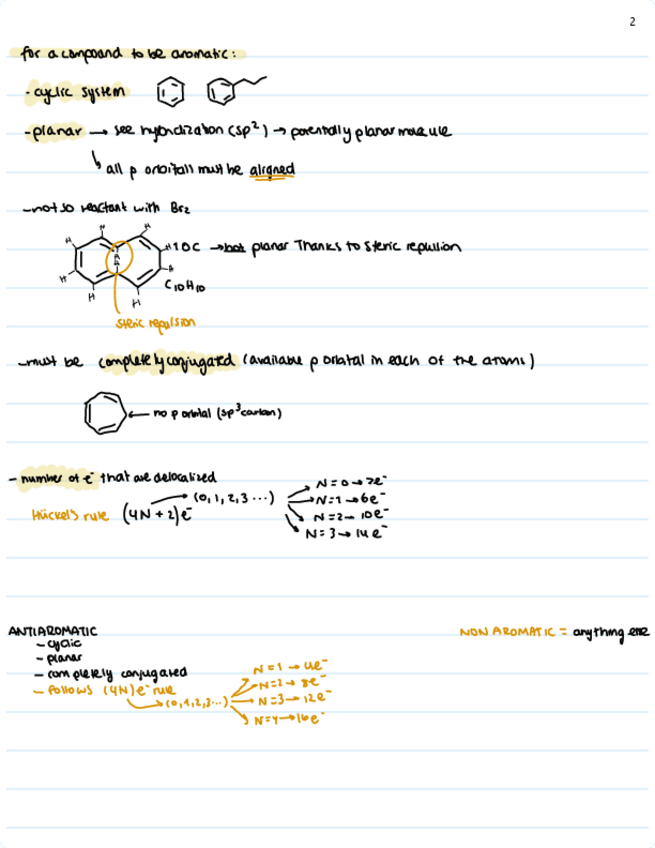 2
for a compound to be aromatic:
- cyclic system
- planar → see hybridization (sp²) → potentially planar molecule
all p orbitals must be aligned
- not so reactant with Br₂
H H H 10C → not planar Thanks to steric repulsion
H H
H H H C₁₀H₁₀
steric repulsion
- must be completely conjugated (available p orbital in each of the atoms)
← no p orbital (sp³ carbon)
- number of e⁻ that are delocalized
Hückel's rule (4N+2)e⁻ → (0,1,2,3...)
N=0→2e⁻
N=1→6e⁻
N=2→10e⁻
N=3→14e⁻
ANTIAROMATIC
- cyclic
- planar
- completely conjugated
- follows (4N)e⁻ rule
→ (0,1,2,3...)
N=1→4e⁻
N=2→8e⁻
N=3→12e⁻
N=4→16e⁻
NON AROMATIC = anything else